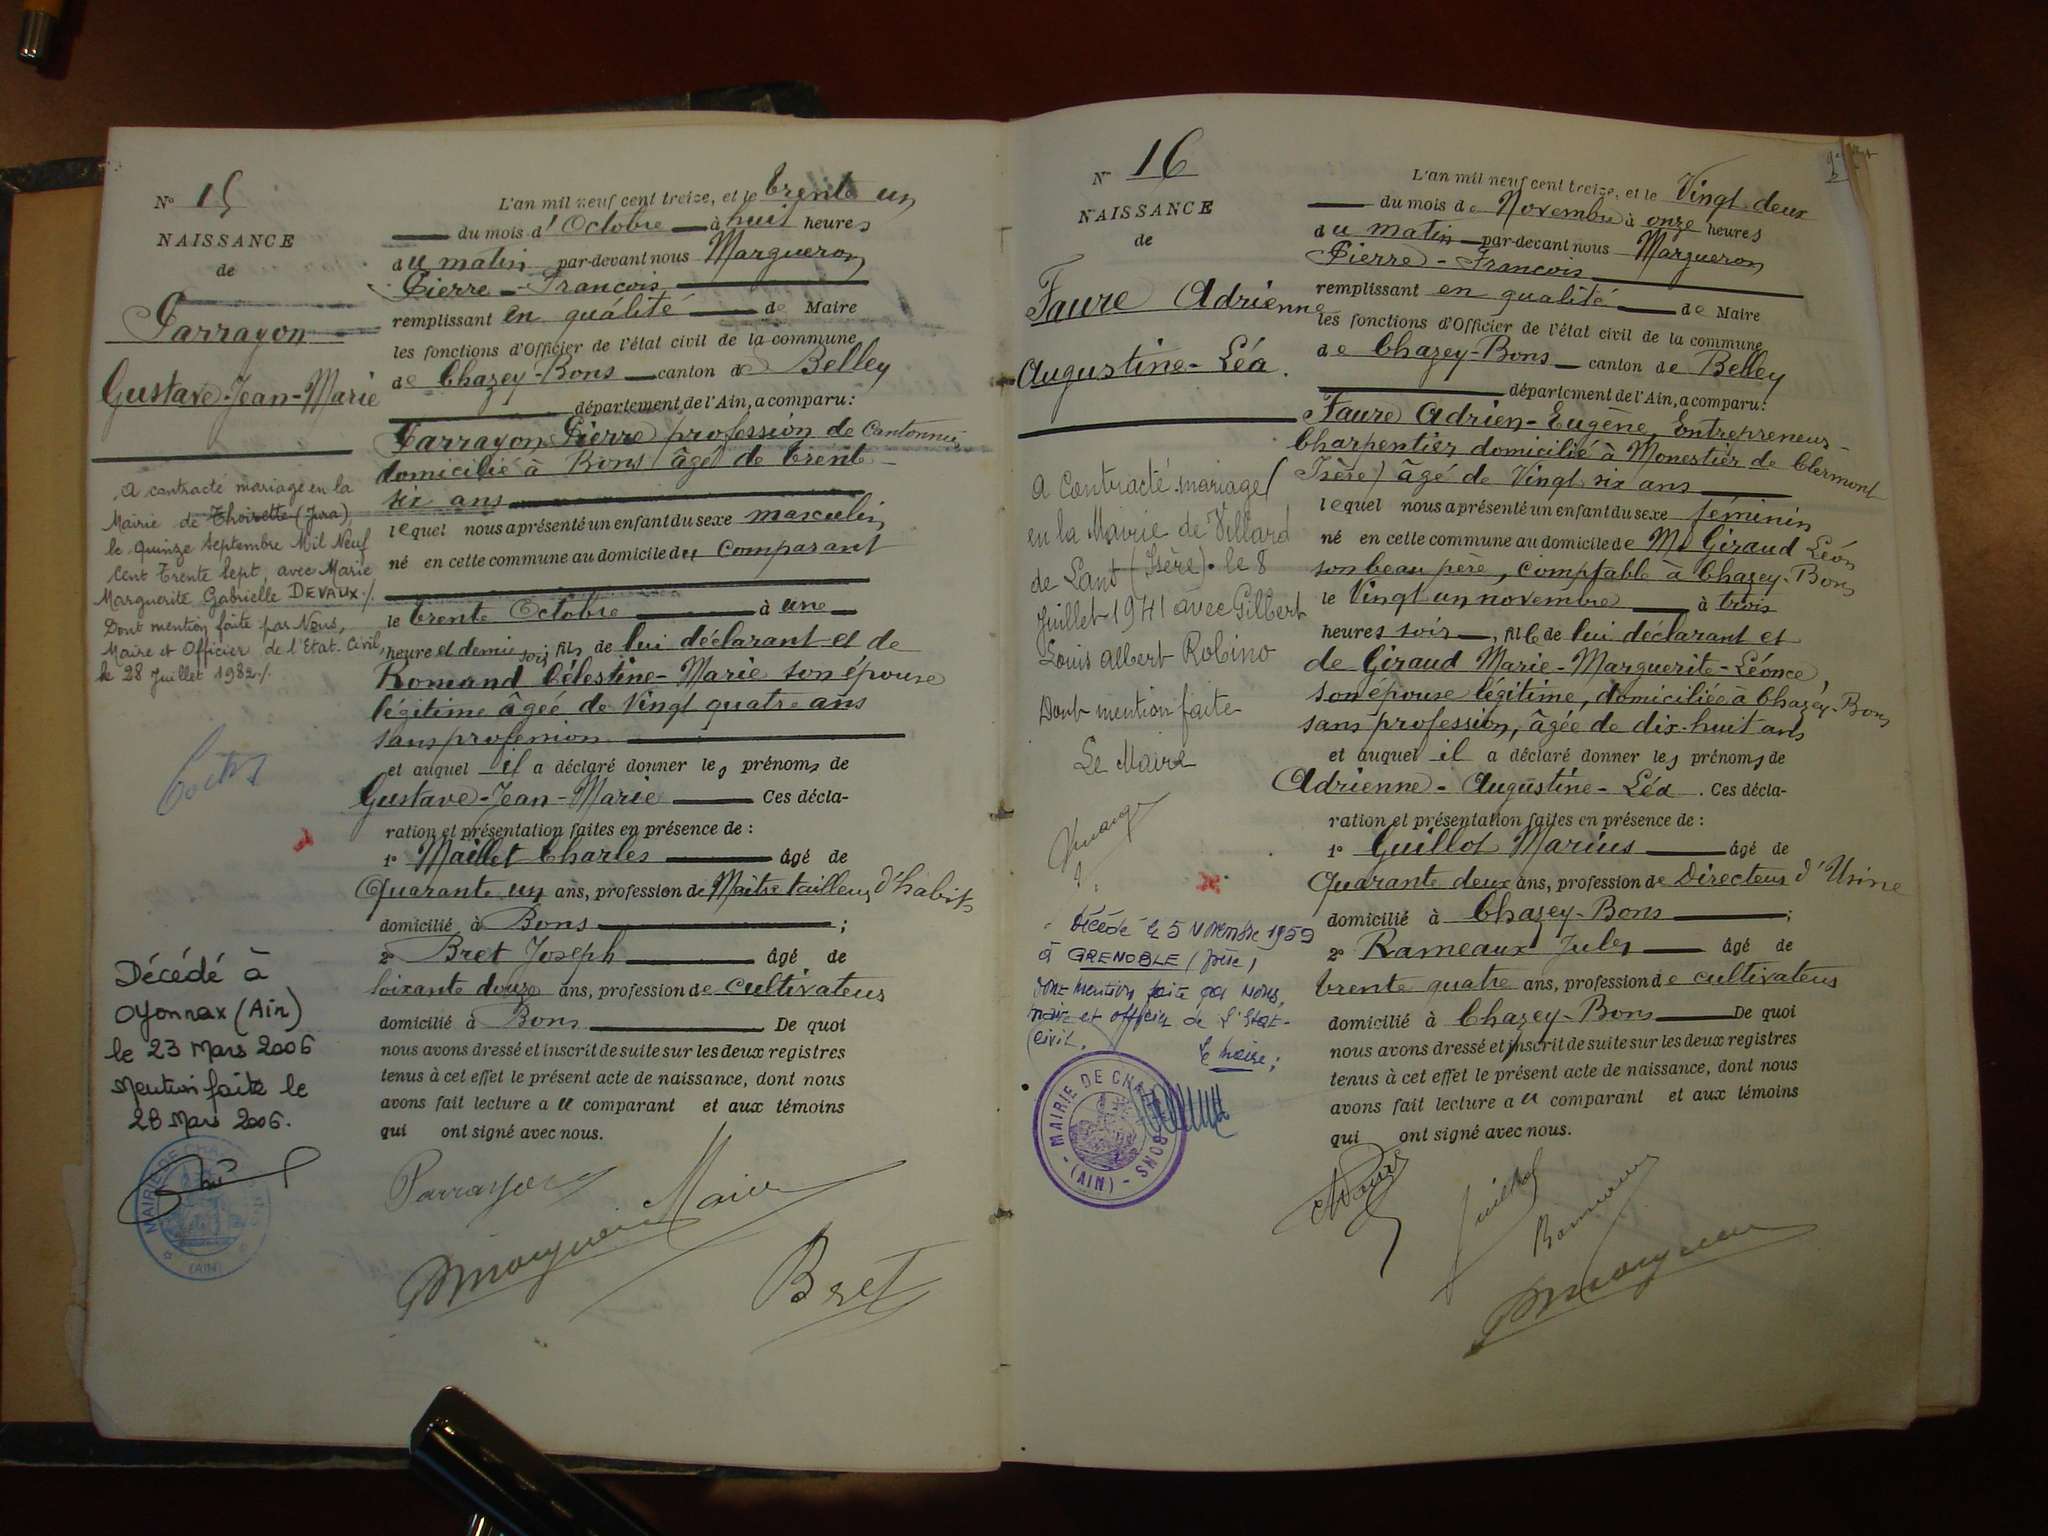 N° 15
NAISSANCE
de
Parrayon
Gustave-Jean-Marie
A contracté mariage en la
Mairie de Thoirette (Jura)
le quinze septembre Mil Neuf
Cent Trente Sept, avec Marie
Marguerite Gabrielle DEVAUX ./.
Dont mention faite par Nous,
Maire et Officier de l'Etat-Civil,
le 28 Juillet 1982 ./.
Décédé à
Oyonnax (Ain)
le 23 Mars 2006
Mention faite le
28 Mars 2006.
MAIRIE DE CHA
(AIN)
L'an mil neuf cent treize, et le trente un
du mois d'Octobre à huit heures
du matin par-devant nous Margueron
Pierre-François
remplissant en qualité de Maire
les fonctions d'Officier de l'état civil de la commune
de Chazey-Bons canton de Belley
département de l'Ain, a comparu :
Parrayon Pierre profession de Cantonnier
domicilié à Bons âgé de trente
six ans
lequel nous a présenté un enfant du sexe masculin
né en cette commune au domicile du comparant
le trente Octobre à une
heure et demie soir, fils de lui déclarant et de
Romand Célestine-Marie son épouse
légitime âgée de Vingt quatre ans
sans profession
et auquel il a déclaré donner les prénoms de
Gustave-Jean-Marie Ces décla-
ration et présentation faites en présence de :
1° Maillet Charles âgé de
Quarante un ans, profession de Maître tailleur d'habits
domicilié à Bons ;
2° Bret Joseph âgé de
soixante douze ans, profession de cultivateur
domicilié à Bons De quoi
nous avons dressé et inscrit de suite sur les deux registres
tenus à cet effet le présent acte de naissance, dont nous
avons fait lecture au comparant et aux témoins
qui ont signé avec nous.
Parrayon
Margueron
Bret
N° 16
NAISSANCE
de
Faure Adrienne
Augustine-Léa.
A Contracté mariage
en la Mairie de Villard
de Lans (Isère). le 8
Juillet 1941 avec Gilbert
Louis Albert Robino
Dont mention faite
Le Maire
Décédé le 5 Novembre 1959
à GRENOBLE (Isère)
dont mention faite par Nous,
maire et officier de l'Etat-
Civil.
Le Maire;
MAIRIE DE CHA BONS
(AIN)
L'an mil neuf cent treize, et le Vingt deux
du mois de Novembre à onze heures
du matin par-devant nous Margueron
Pierre-François
remplissant en qualité de Maire
les fonctions d'Officier de l'état civil de la commune
de Chazey-Bons canton de Belley
département de l'Ain, a comparu :
Faure Adrien-Eugène, Entrepreneur-
Charpentier domicilié à Monestier de Clermont
(Isère) âgé de Vingt six ans
lequel nous a présenté un enfant du sexe féminin
né en cette commune au domicile de Mr Giraud Léon
son beau père, comptable à Chazey-Bons
le Vingt un novembre à trois
heures soir, fille de lui déclarant et
de Giraud Marie-Marguerite-Léonce,
son épouse légitime, domiciliée à Chazey-Bons
sans profession, âgée de dix-huit ans
et auquel il a déclaré donner les prénoms de
Adrienne-Augustine-Léa. Ces décla-
ration et présentation faites en présence de :
1° Guillot Marius âgé de
Quarante deux ans, profession de Directeur d'Usine
domicilié à Chazey-Bons ;
2° Rameaux Jules âgé de
trente quatre ans, profession de cultivateur
domicilié à Chazey-Bons De quoi
nous avons dressé et inscrit de suite sur les deux registres
tenus à cet effet le présent acte de naissance, dont nous
avons fait lecture au comparant et aux témoins
qui ont signé avec nous.
AFaure
Guillot
Rameaux
Margueron